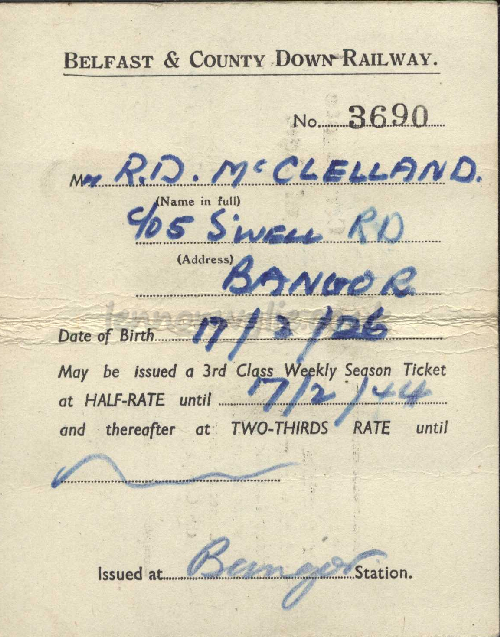 BELFAST & COUNTY DOWN RAILWAY.
No. 3690
Mr R.D. McCLELLAND.
(Name in full)
RD
(Address)
BANGOR
Date of Birth 17/2/26
May be issued a 3rd Class Weekly Season Ticket
at HALF-RATE until 17/2/44
and thereafter at TWO-THIRDS RATE until
Issued at Bangor Station.